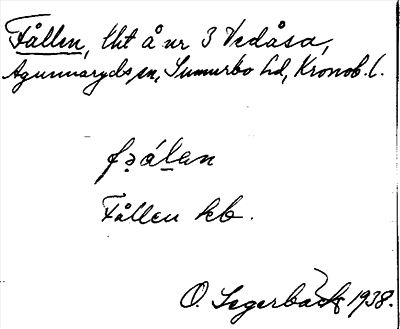 Fållen, lht å nr 3 Vedåsa,
Agunnaryds sn, Sunnerbo hd, Kronob. l.
fə́lan
Fållen kb.
O. Segerbäck 1938.